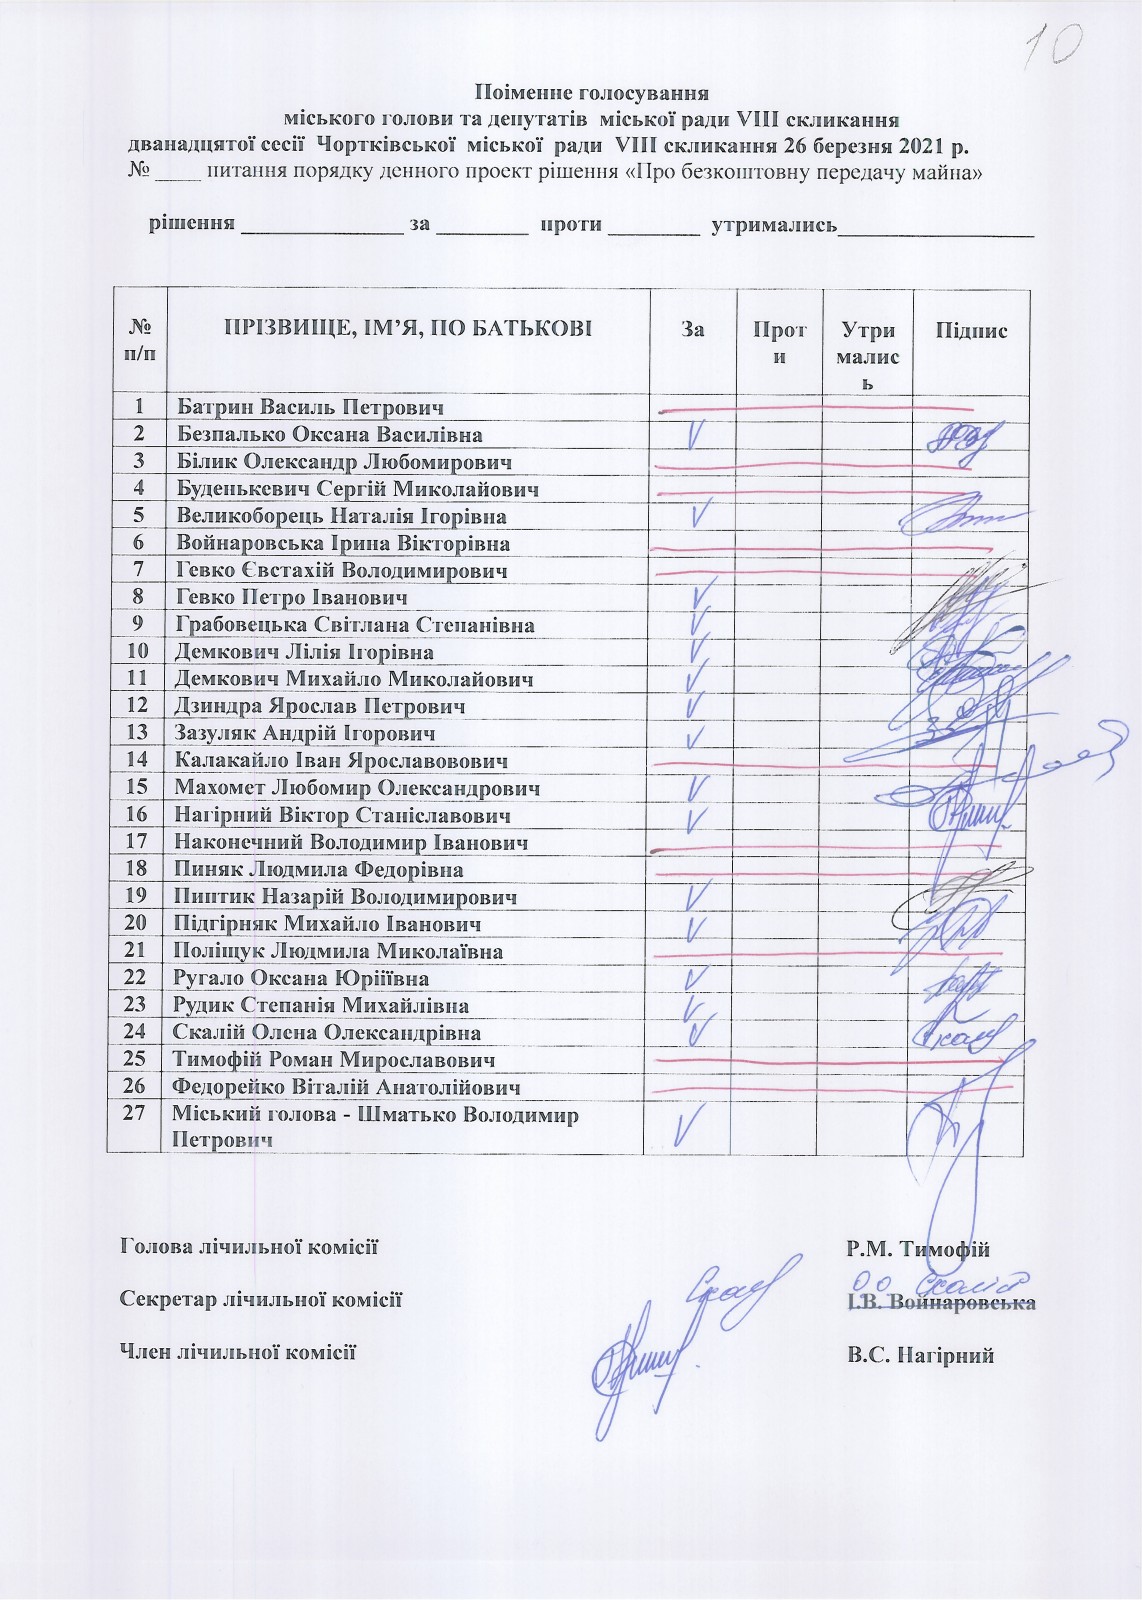 10
Поіменне голосування
міського голови та депутатів міської ради VIII скликання
дванадцятої сесії Чортківської міської ради VIII скликання 26 березня 2021 р.
№ ____ питання порядку денного проект рішення «Про безкоштовну передачу майна»
рішення ______________ за ________ проти ________ утримались_________________
№ п/п ПРІЗВИЩЕ, ІМ’Я, ПО БАТЬКОВІ За Проти Утримались Підпис
1 Батрин Василь Петрович
2 Безпалько Оксана Василівна V
3 Білик Олександр Любомирович
4 Буденькевич Сергій Миколайович
5 Великоборець Наталія Ігорівна V
6 Войнаровська Ірина Вікторівна
7 Гевко Євстахій Володимирович
8 Гевко Петро Іванович V
9 Грабовецька Світлана Степанівна V
10 Демкович Лілія Ігорівна V
11 Демкович Михайло Миколайович V
12 Дзиндра Ярослав Петрович V
13 Зазуляк Андрій Ігорович V
14 Калакайло Іван Ярославовович
15 Махомет Любомир Олександрович V
16 Нагірний Віктор Станіславович V
17 Наконечний Володимир Іванович
18 Пиняк Людмила Федорівна
19 Пиптик Назарій Володимирович V
20 Підгірняк Михайло Іванович V
21 Поліщук Людмила Миколаївна
22 Ругало Оксана Юріїївна V
23 Рудик Степанія Михайлівна V
24 Скалій Олена Олександрівна V
25 Тимофій Роман Мирославович
26 Федорейко Віталій Анатолійович
27 Міський голова - Шматько Володимир V
Петрович
Голова лічильної комісії Р.М. Тимофій
О О Скалій
Секретар лічильної комісії І.В. Войнаровська
Член лічильної комісії В.С. Нагірний